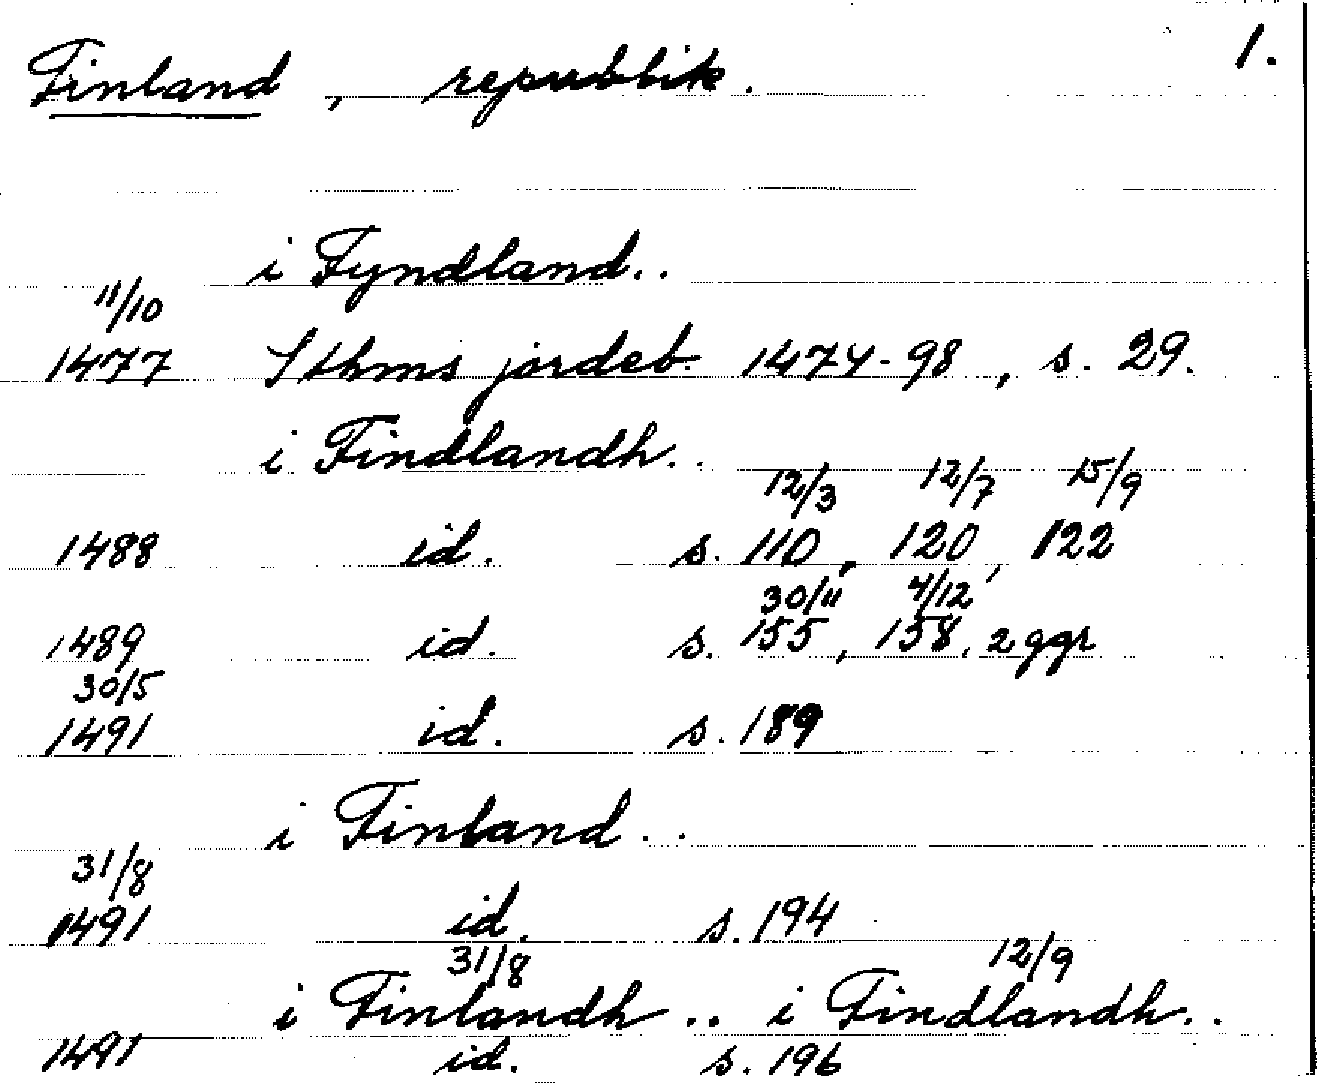 1.
Finland, republik.
i Fyndland..
11/10
1477 Sthms jordeb. 1474-98, s. 29.
i Findlandh..
12/3 12/7 15/9
1488 id. s. 110, 120, 122
30/11 4/12
1489 id. s. 155, 158, 2 ggr
30/5
1491 id. s. 189
i Finland..
31/8
1491 id. s. 194
31/8 12/9
i Finlandh.. i Findlandh..
1491 id. s. 196